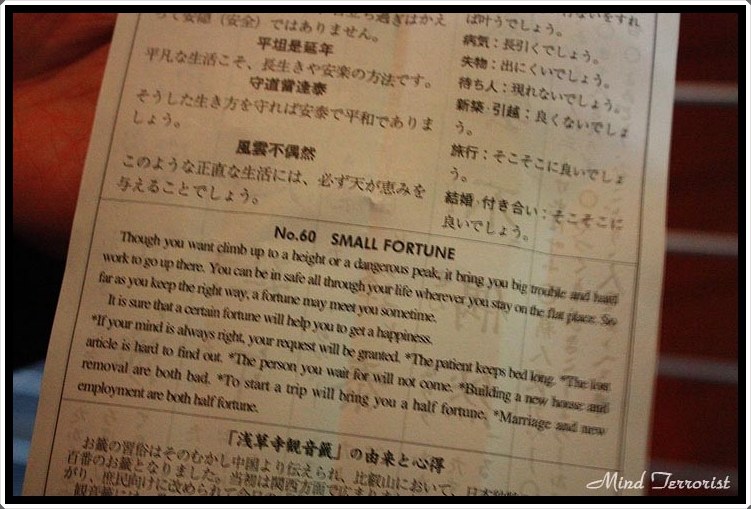 って安穏（安全）ではありません。
平坦是延年
平凡な生活こそ、長生きや安楽の方法です。
守道當達泰
そうした生き方を守れば安泰で平和でありま
しょう。
風雲不偶然
このような正直な生活には、必ず天が恵みを
与えることでしょう。
ば叶うでしょう。
病気：長引くでしょう。
失物：出にくいでしょう。
待ち人：現れないでしょう。
新築・引越：良くないでしょ
う。
旅行：そこそこに良いでしょ
う。
結婚・付き合い：そこそこに
良いでしょう。
No.60 SMALL FORTUNE
Though you want climb up to a height or a dangerous peak, it bring you big trouble and hard
work to go up there. You can be in safe all through your life wherever you stay on the flat place. So
far as you keep the right way, a fortune may meet you sometime.
It is sure that a certain fortune will help you to get a happiness.
*If your mind is always right, your request will be granted. *The patient keeps bed long. *The lost
article is hard to find out. *The person you wait for will not come. *Building a new house and
removal are both bad. *To start a trip will bring you a half fortune. *Marriage and new
employment are both half fortune.
「浅草寺観音籤」の由来と心得
お籤の習俗はそのむかし中国より伝えられ、比叡山において、日本独
百番のお籤となりました。当初は関西方面で広まり
がり、庶民向けに改められて今日の
観音籤には、
Mind Terrorist